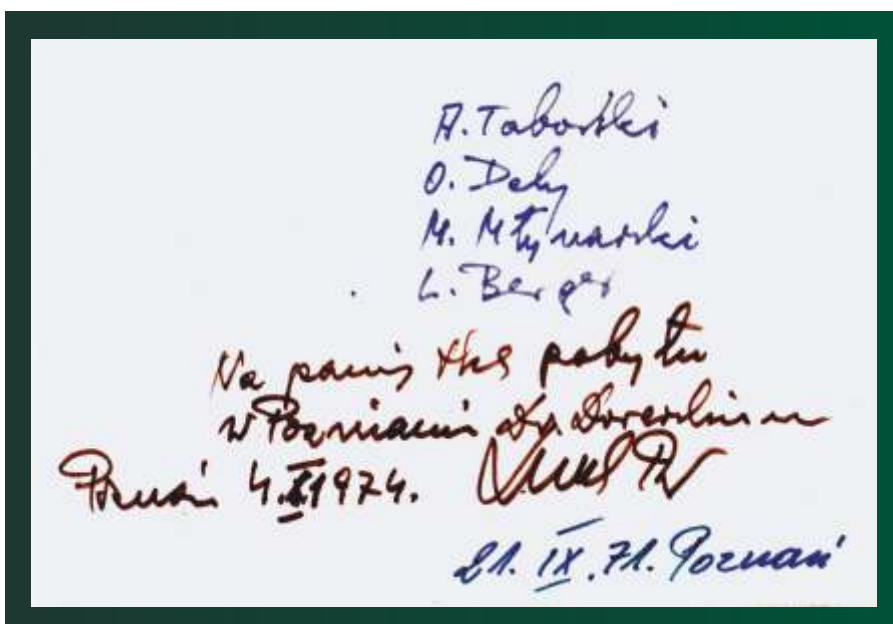 A. Taborski
O. Dely
M. Młynarski
L. Berger
Na pamiątkę pobytu
w Poznaniu
Poznań 4.X.1974.
21. IX. 71. Poznań